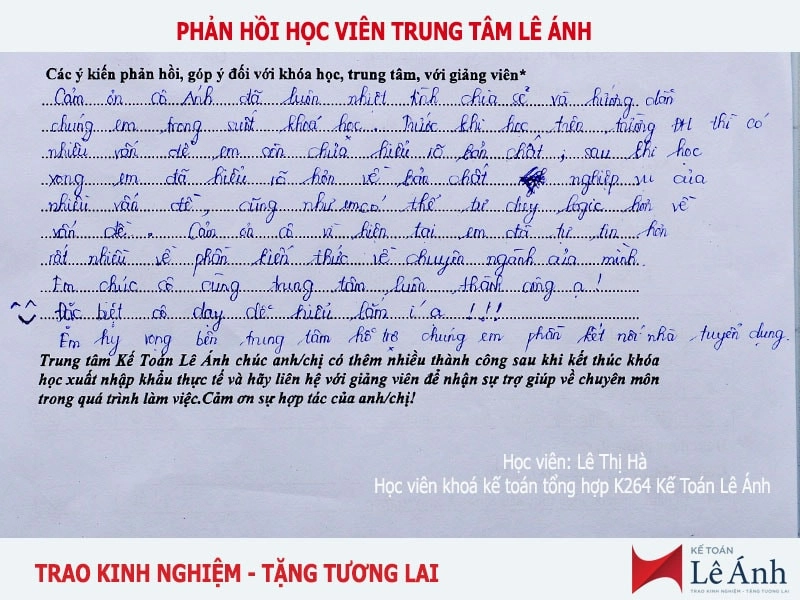 PHẢN HỒI HỌC VIÊN TRUNG TÂM LÊ ÁNH
Các ý kiến phản hồi, góp ý đối với khóa học, trung tâm, với giảng viên*
Cảm ơn cô Ánh đã luôn nhiệt tình chia sẻ và hướng dẫn
chúng em trong suốt khoá học. Trước khi học trên trường ĐH thì có
nhiều vấn đề em còn chưa hiểu rõ bản chất, sau khi học
xong em đã hiểu rõ hơn về bản chất nghiệp vụ của
nhiều vấn đề, cũng như em có thể tư duy logic hơn về
vấn đề. Cảm ơn cô vì hiện tại em đã tự tin hơn
rất nhiều về phần kiến thức về chuyên ngành của mình.
Em chúc cô cùng trung tâm luôn thành công ạ!
Đặc biệt cô dạy dễ hiểu lắm í ạ !!!
Em hy vọng bên trung tâm hỗ trợ chúng em phần kết nối nhà tuyển dụng.
Trung tâm Kế Toán Lê Ánh chúc anh/chị có thêm nhiều thành công sau khi kết thúc khóa
học xuất nhập khẩu thực tế và hãy liên hệ với giảng viên để nhận sự trợ giúp về chuyên môn
trong quá trình làm việc.Cảm ơn sự hợp tác của anh/chị!
Học viên: Lê Thị Hà
Học viên khoá kế toán tổng hợp K264 Kế Toán Lê Ánh
TRAO KINH NGHIỆM - TẶNG TƯƠNG LAI
KẾ TOÁN
Lê Ánh
TRAO KINH NGHIỆM - TẶNG TƯƠNG LAI